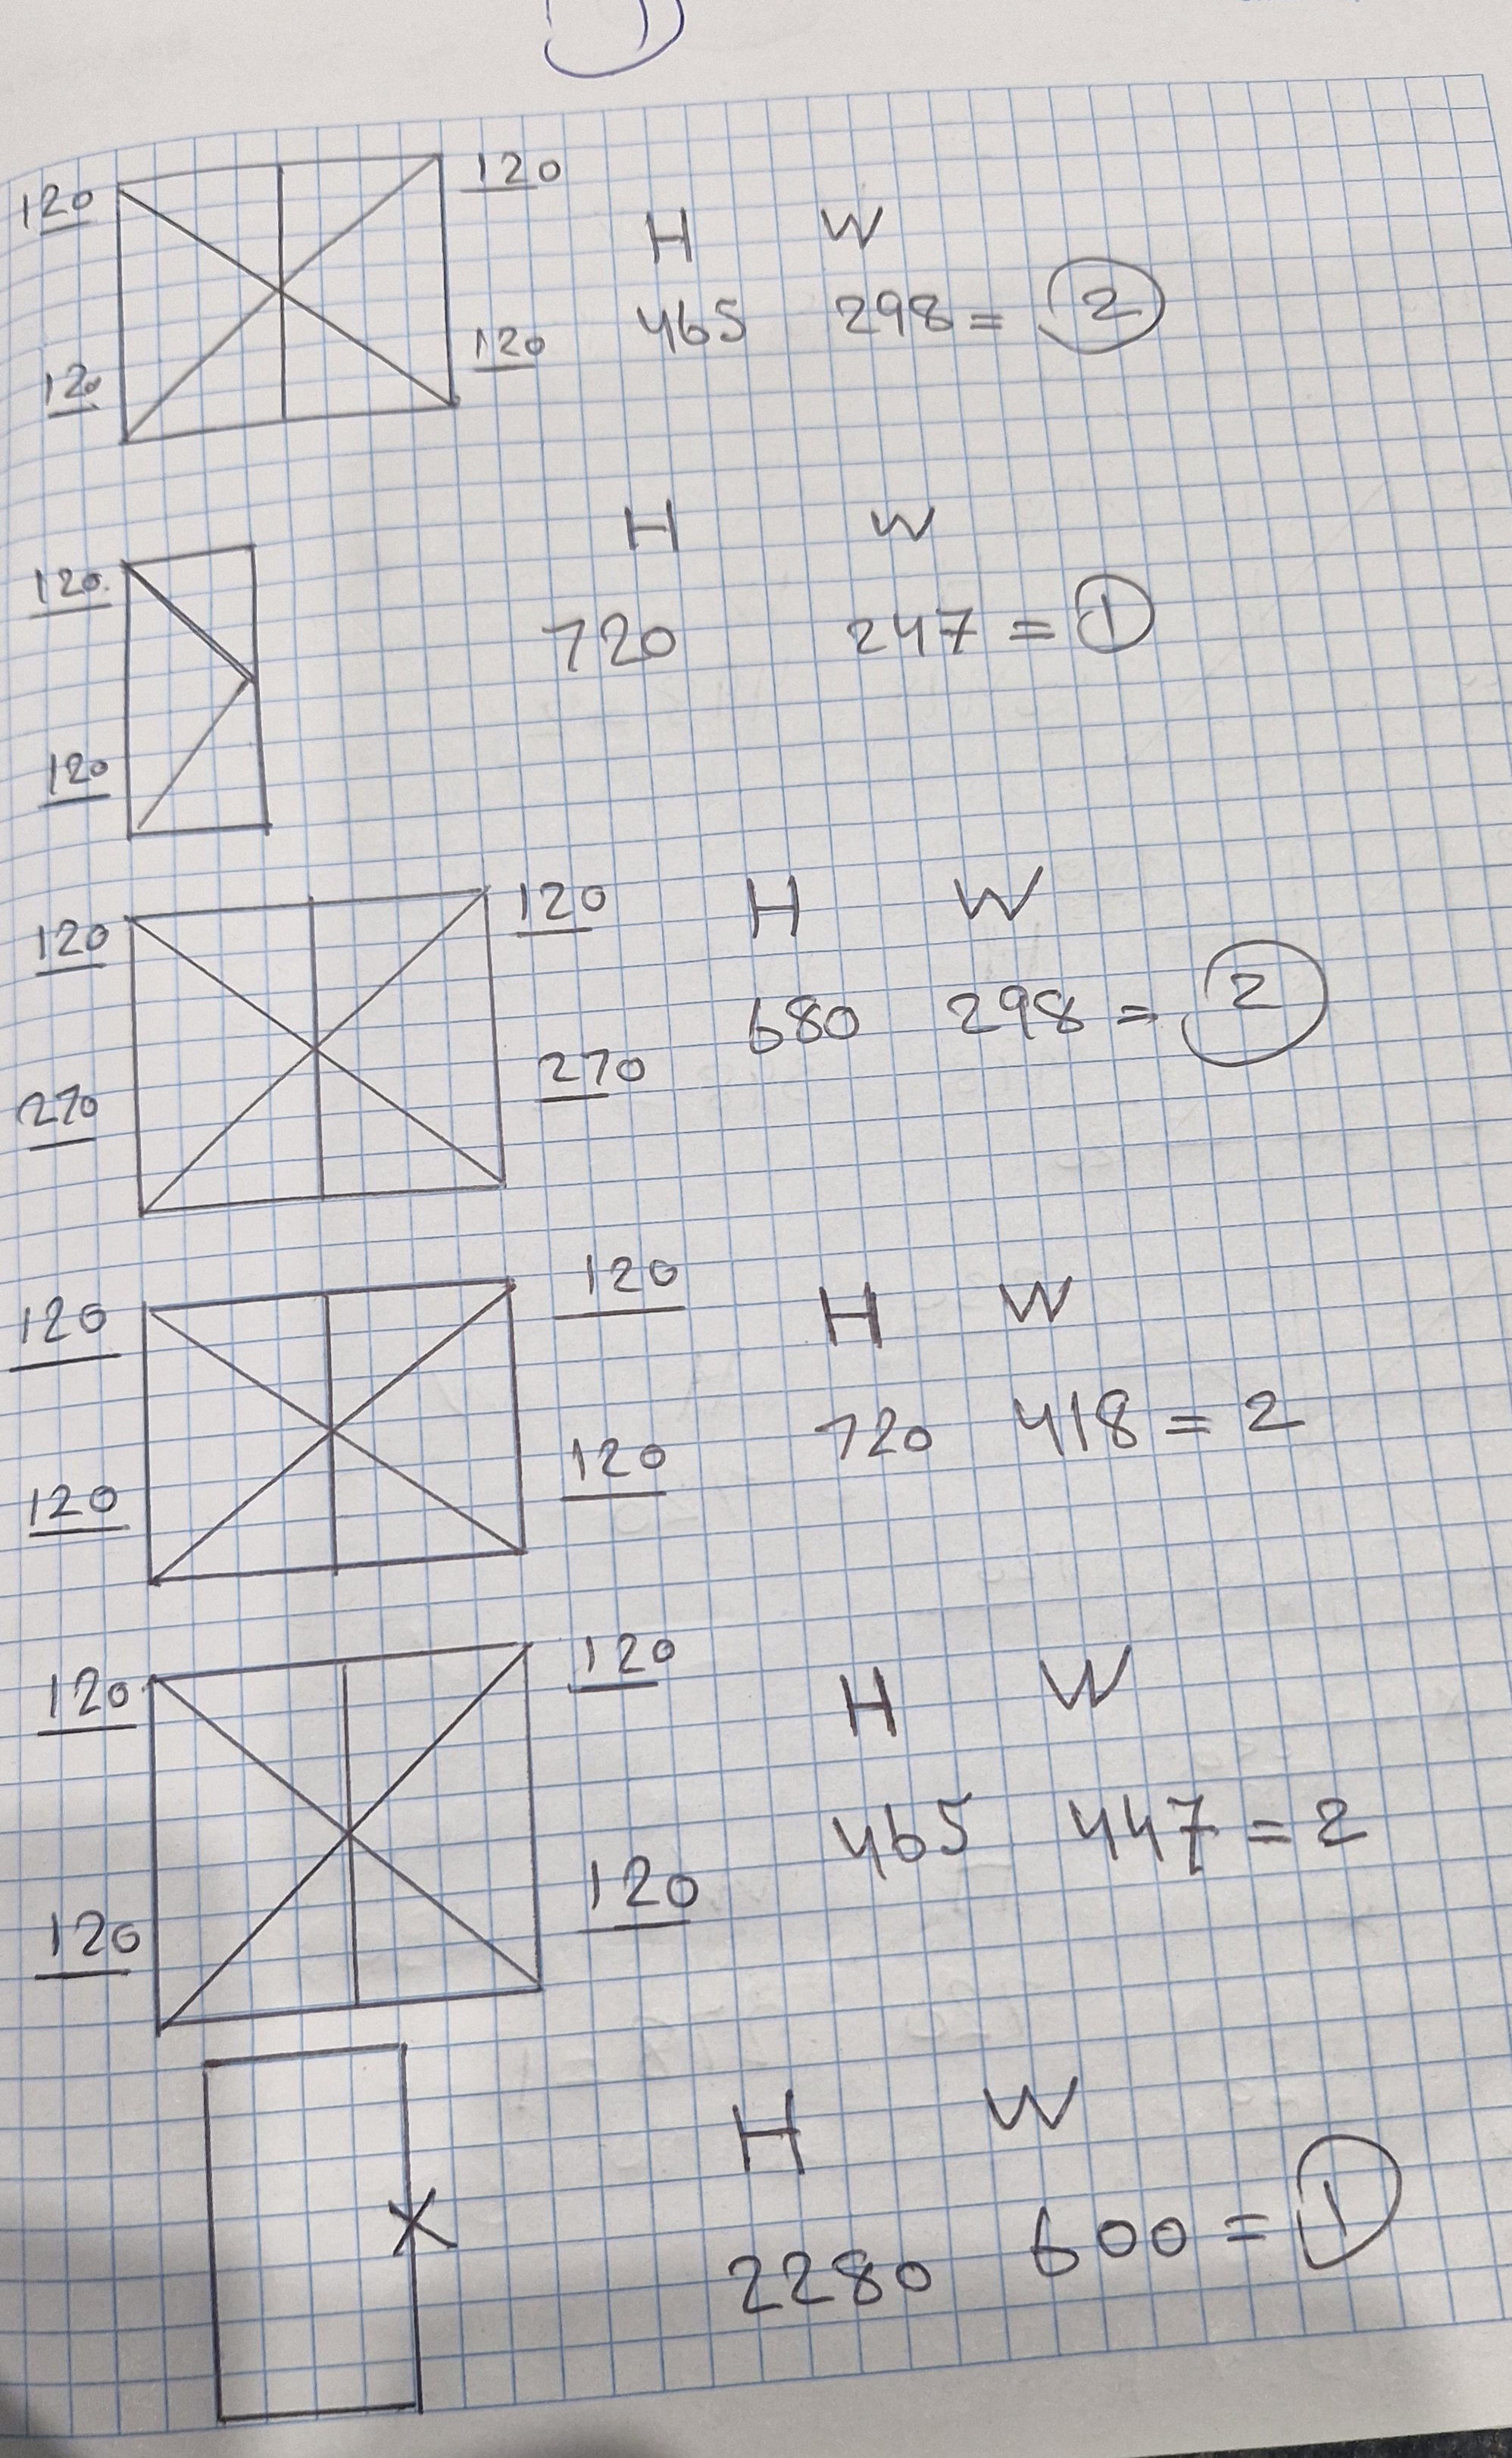 120 120
H W
465 298 = 2
120 120
H W
120
720 247 = 1
120
120 120 H W
680 298 = 2
270 270
120 120 H W
720 418 = 2
120 120
120 120 H W
465 447 = 2
120 120
H W
X
2280 600 = 1